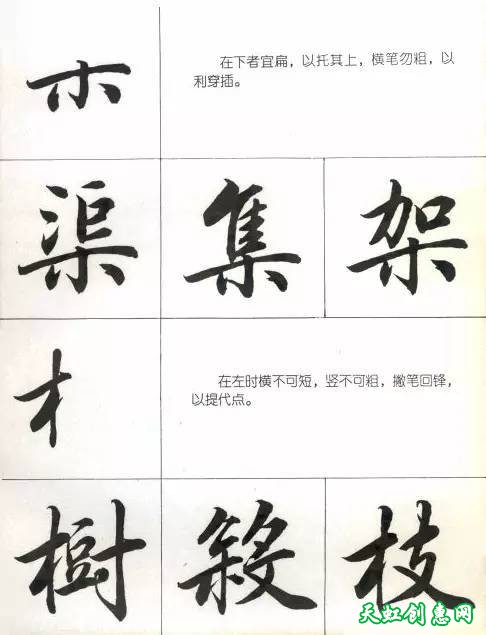 在下者宜扁，以托其上，横笔勿粗，以
利穿插。
渠 集 架
在左时横不可短，竖不可粗，撇笔回锋，
以提代点。
樹 敘 枝
天虹创惠网